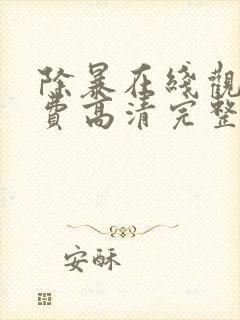 除暴在綫觀
費高清完整
安酥